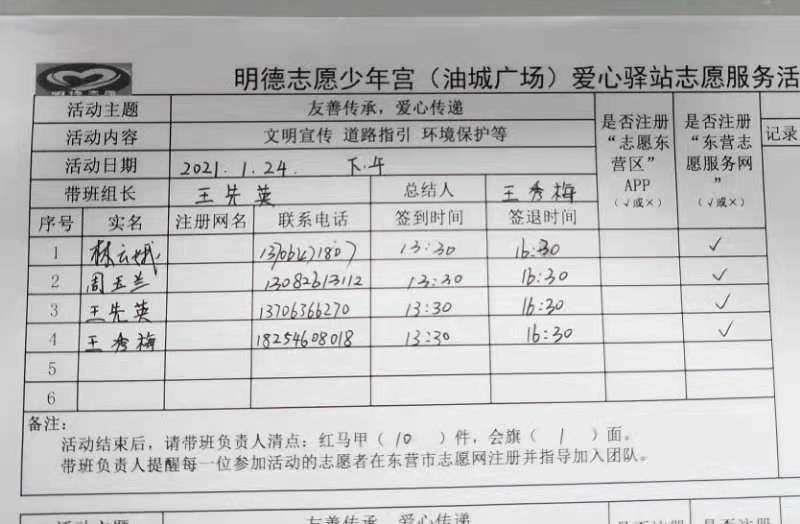 明德志愿少年宫（油城广场）爱心驿站志愿服务活
活动主题 友善传承，爱心传递 是否注册“志愿东营区”APP（√或×） 是否注册“东营志愿服务网”（√或×） 记录
活动内容 文明宣传 道路指引 环境保护等
活动日期 2021.1.24. 下午
带班组长 王先英 总结人 王秀梅
序号 实名 注册网名 联系电话 签到时间 签退时间
1 林云娥 13706471807 13:30 16:30 √
2 周玉兰 13082613112 13:30 16:30 √
3 王先英 13706366270 13:30 16:30 √
4 王秀梅 18254608018 13:30 16:30 √
5
6
备注：
活动结束后，请带班负责人清点：红马甲（10）件，会旗（1）面。
带班负责人提醒每一位参加活动的志愿者在东营市志愿网注册并指导加入团队。
活动主题 友善传承，爱心传递 是否注册 是否注册